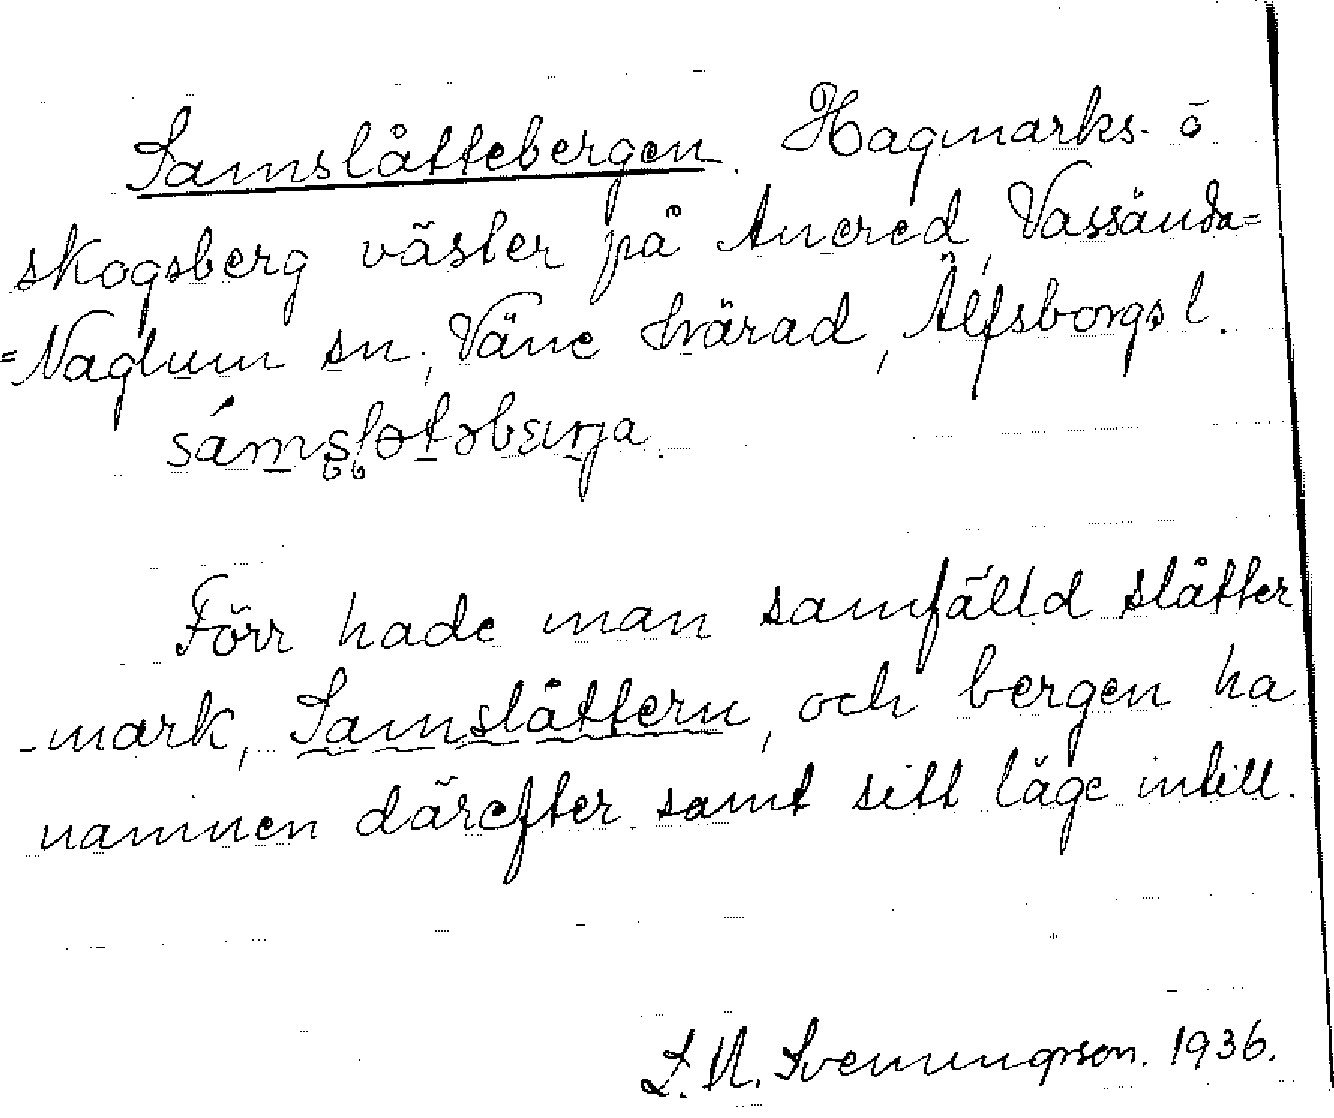 Samslåttebergen. Hagmarks- o
skogsberg väster på Anered, Vassända=
=Naglum sn, Väne härad, Älfsborgs l.
Förr hade man samfälld slåtter-
-mark, Samslåttern, och bergen ha
namnen därefter samt sitt läge intill.
1936.